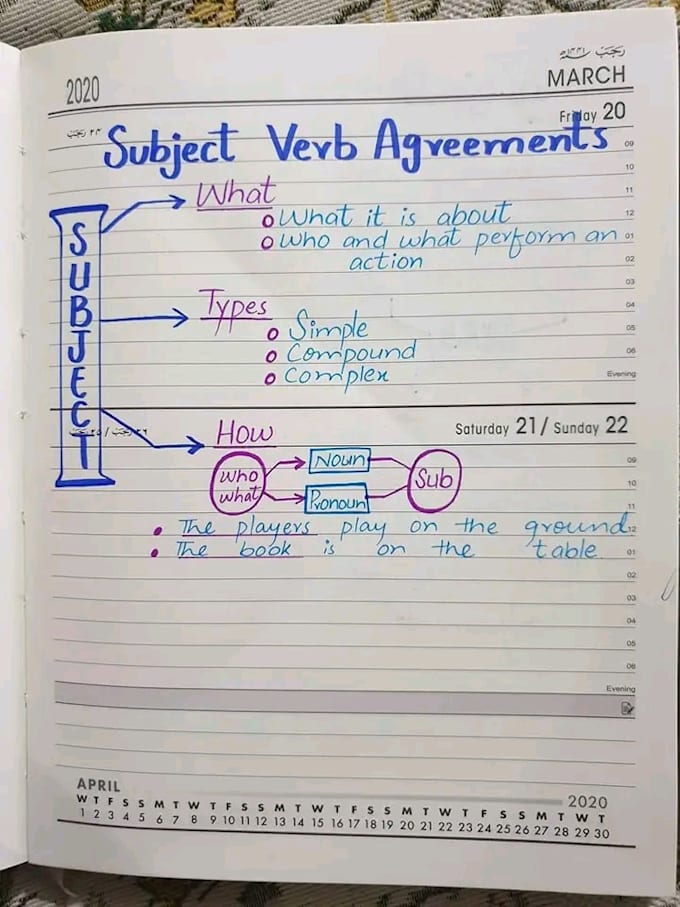 رجب ١٤٤١ھ
2020 MARCH
Friday 20
٢٤ رجب
Subject Verb Agreements
09
10
What
11
o What it is about
12
o Who and what perform an
01
action
02
03
SUBJECT
Types
04
o Simple
05
o Compound
06
o Complex
Evening
٢٥ رجب / ٢٦ رجب
Saturday 21/ Sunday 22
How
09
who what
Noun
Pronoun
Sub
10
11
• The players play on the ground
12
• The book is on the table
01
02
03
04
05
06
Evening
APRIL 2020
W T F S S M T W T F S S M T W T F S S M T W T F S S M T W T
1 2 3 4 5 6 7 8 9 10 11 12 13 14 15 16 17 18 19 20 21 22 23 24 25 26 27 28 29 30